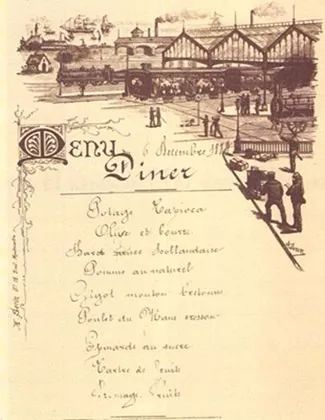 Menu
6 Decembre
Diner
Potage Tapioca
Olive et beurre
sauce hollandaise
Pomme au naturel
Gigot mouton bretonne
Poulet du Mans cresson
Epinards au sucre
Tartre de fruits
Fromage, Fruits